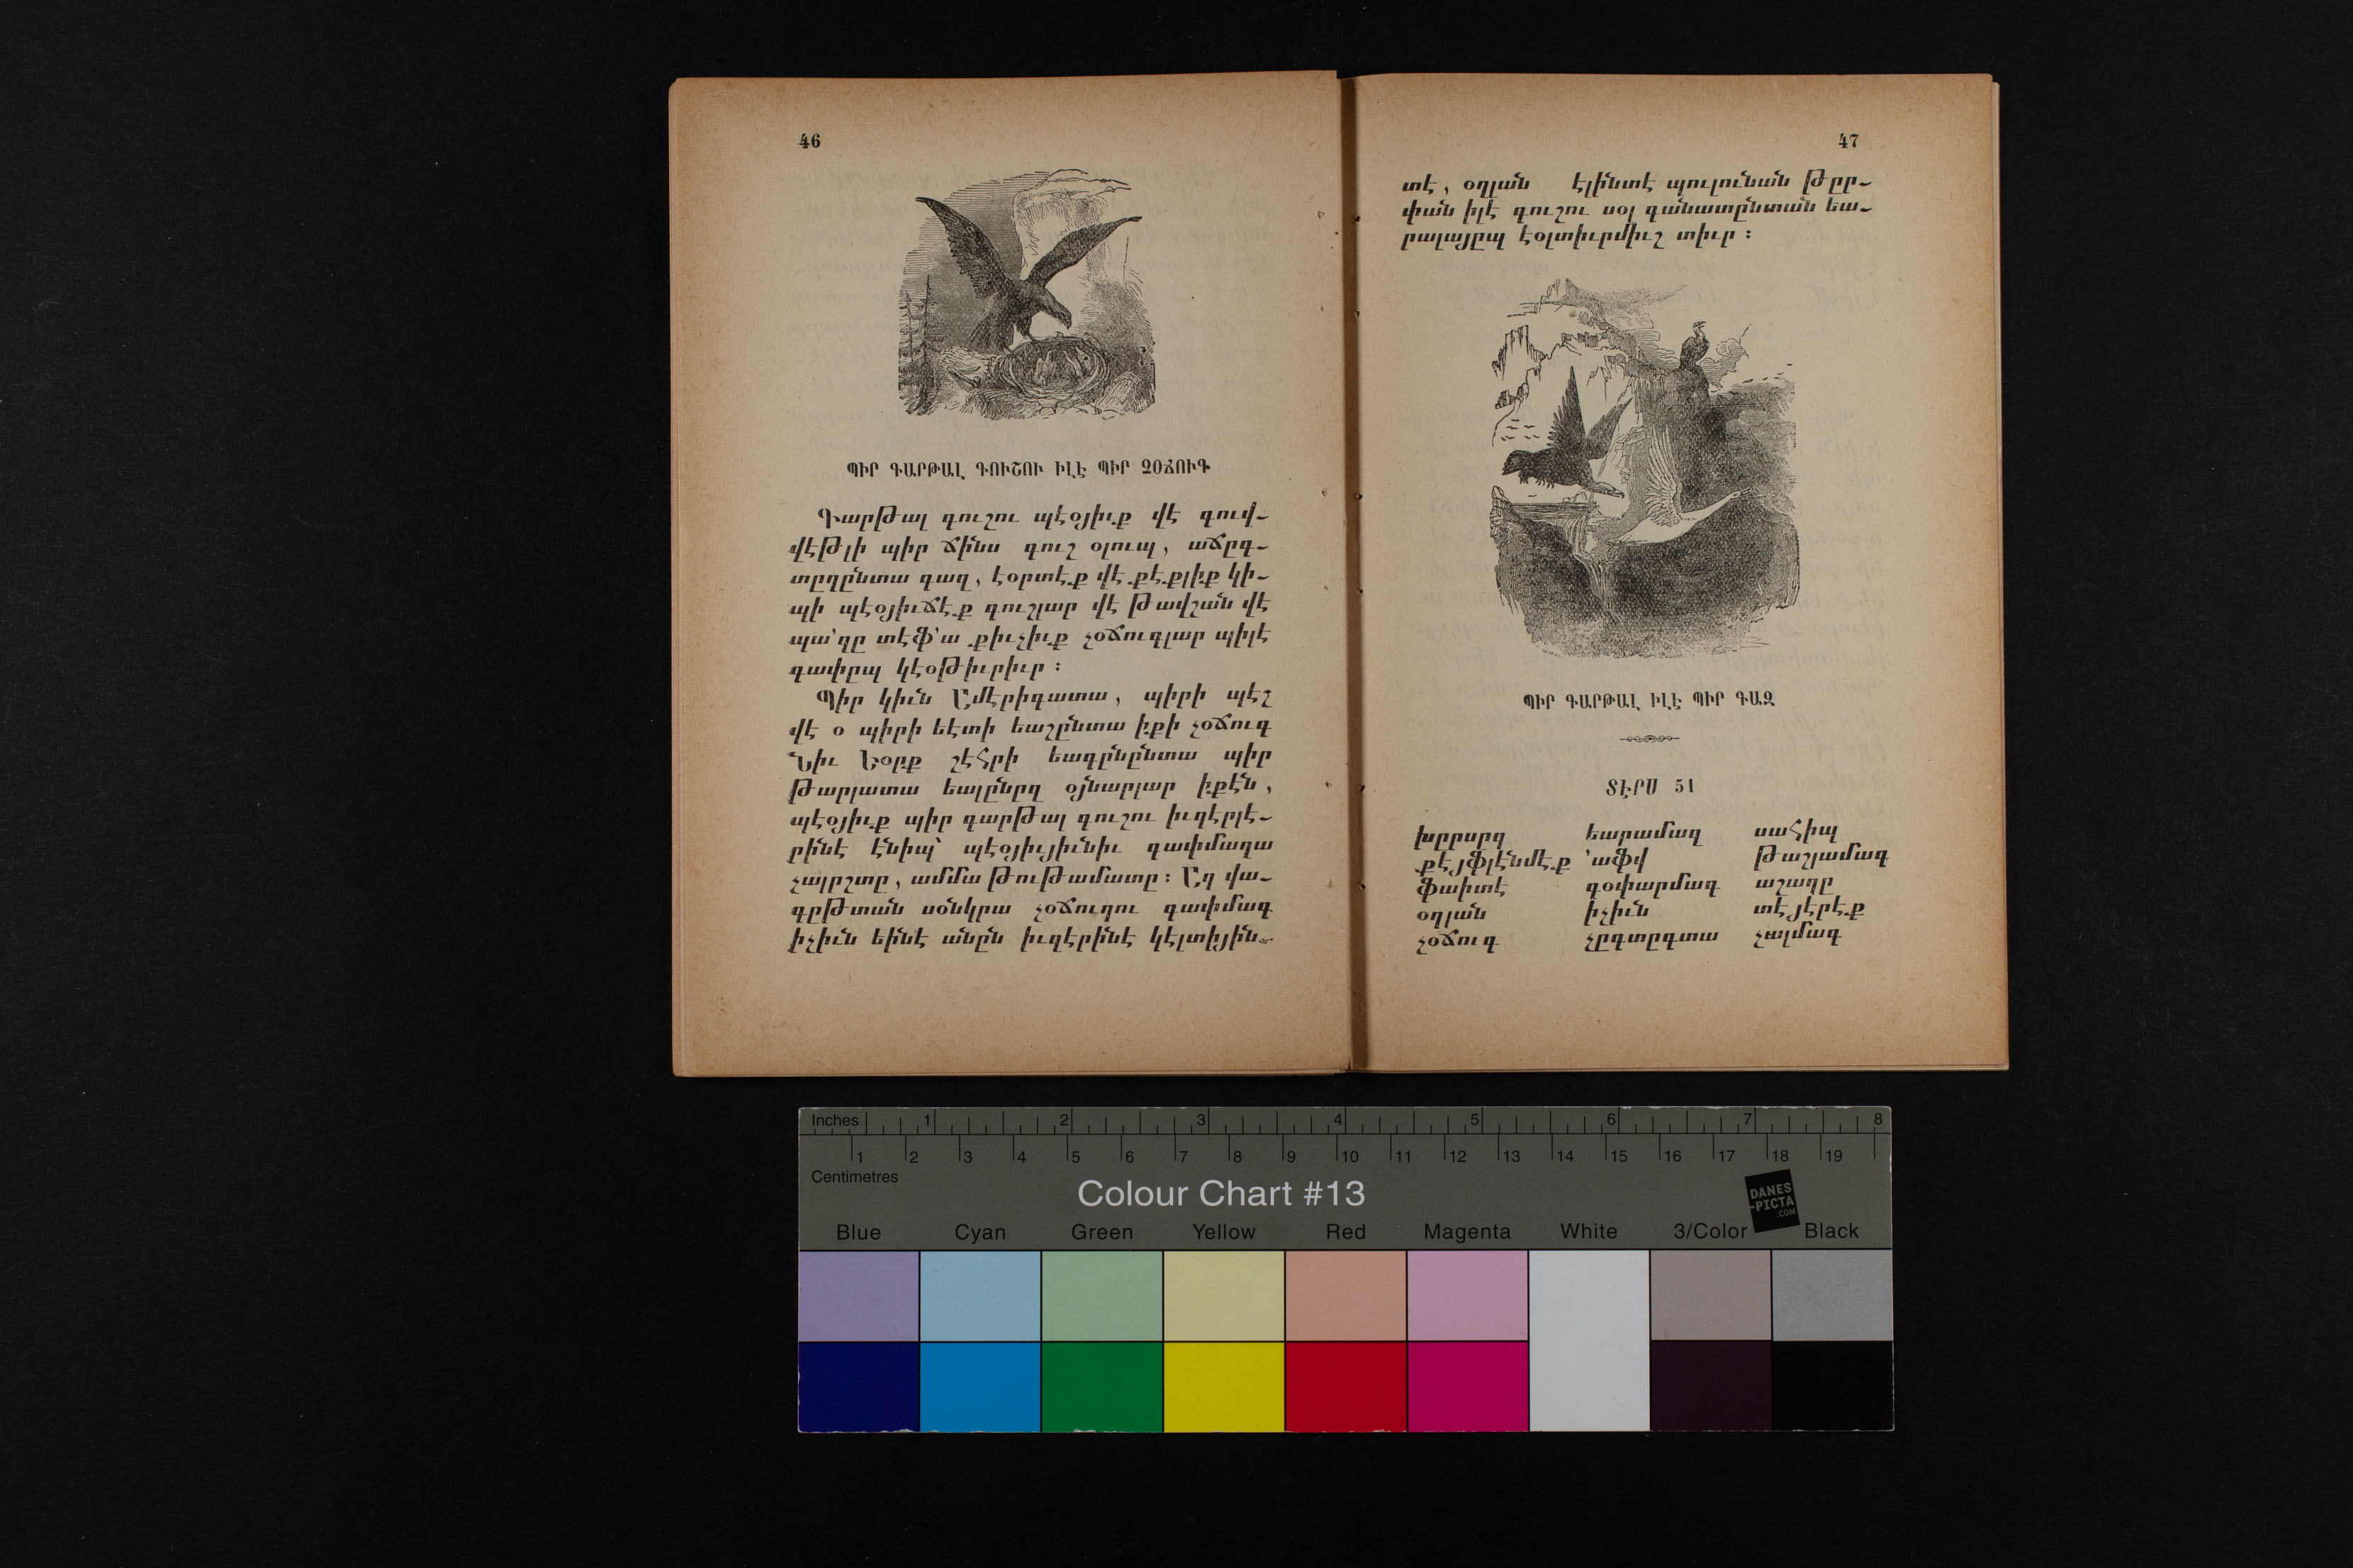 46
ՊԻՐ ԳԱՐԹԱԼ ԳՈՒՇՈՒ ԻԼԷ ՊԻՐ ՉՕՃՈՒԳ
Գարթալ գուշու պէօյիւք վէ գուվ-
վէթլի պիր ճինս գուշ օլուպ, աճըգ-
տըղընտա գազ, էօրտէք վէ քէքլիք կի-
պի պէօյիւճէք գուշլար վէ թավշան վէ
պա՚զը տէֆ՚ա քիւչիւք չօճուգլար պիլէ
գափըպ կէօթիւրիւր ։
Պիր կիւն Ամէրիգատա, պիրի պէշ
վէ օ պիրի եէտի եաշընտա իքի չօճուգ
Նիւ Եօրք շէհրի եագընընտա պիր
թարլատա եալընըզ օյնարլար իքէն,
պէօյիւք պիր գարթալ գուշու իւզէրլէ-
րինէ էնիպ՝ պէօյիւյիւնիւ գափմաղա
չալըշտը, ամմա թութամատը ։ Ազ վա-
գըթտան սօնկրա չօճուղու գափմագ
իչիւն եինէ անըն իւզէրինէ կէլտիյին-
47
տէ, օղլան էլինտէ պուլունան թըր-
փան իլէ գուշու սօլ գանատընտան եա-
րալայըպ էօլտիւրմիւշ տիւր ։
ՊԻՐ ԳԱՐԹԱԼ ԻԼԷ ՊԻՐ ԳԱԶ
ՏԷՐՍ 51
խըրսըզ եարամազ սահիպ
քէյֆլէնմէք ՚աֆվ թաշլամագ
ֆաիտէ գօփարմագ աշաղը
օղլան իչիւն տէյէրէք
չօճուգ չըգտըգտա չալմագ
Inches 1 2 3 4 5 6 7 8
1 2 3 4 5 6 7 8 9 10 11 12 13 14 15 16 17 18 19
Centimetres
Colour Chart #13
DANES
-PICTA
.COM
Blue Cyan Green Yellow Red Magenta White 3/Color Black